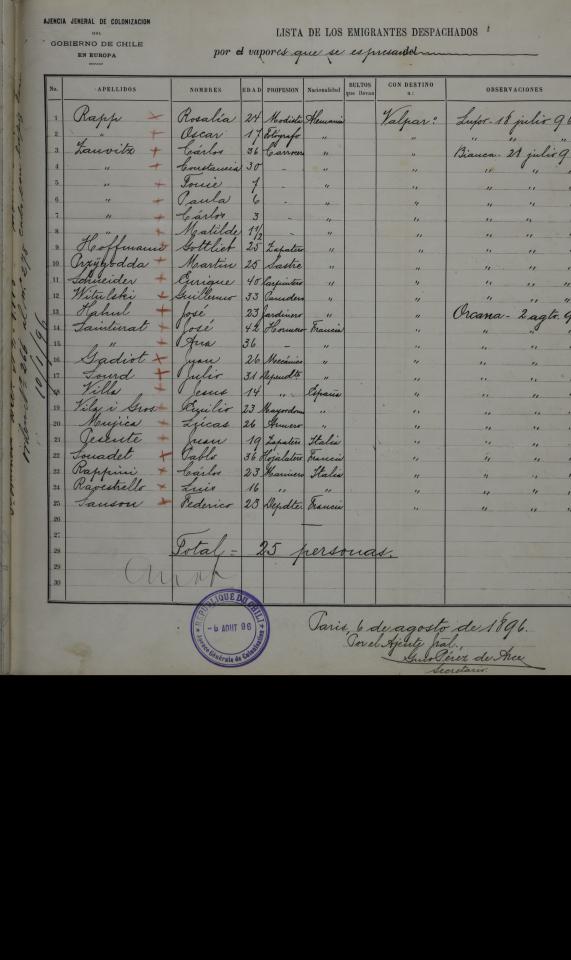 AJENCIA JENERAL DE COLONIZACION
DEL
GOBIERNO DE CHILE
EN EUROPA
LISTA DE LOS EMIGRANTES DESPACHADOS
por el vapores que se espresan del
No. APELLIDOS NOMBRES EDAD PROFESION Nacionalidad BULTOS que llevan CON DESTINO a: OBSERVACIONES
1 Rapp Rosalia 24 Modista Alemania Valpar: Luxor - 18 julio 96
2 " Oscar 17 Fotógrafo " " " "
3 Lauvitz Cárlos 36 Carrocero " " Bianca - 21 julio 9
4 " Constancia 30 - " " " "
5 " 7 - " " " "
6 " Paula 6 - " " " "
7 " Cárlos 3 - " " " "
8 " Matilde 1 1/2 - " " " "
9 Hoffmann Gottlieb 25 Zapatero " " " "
10 Przygodda Martin 25 Sastre " " " "
11 Schneider Enrique 40 Carpintero " " " "
12 Witulski Guillermo 33 Panadero " " " "
13 Kahul José 23 Jardinero " " Orcana - 2 agto. 9
14 José 42 Hornero Francia " " "
15 " Ana 36 - " " " "
16 Gadiot Juan 26 Mecánico " " " "
17 Sourd Julio 31 Depndte " " " "
18 Villa Jesus 14 " España " " "
19 Vila i Gros Emilio 23 Mayordom " " " "
20 Mujica Lúcas 26 Armero " " " "
21 Juan 19 Zapatero Italia " " "
22 Souadet Pablo 36 Hojalatero Francia " " "
23 Rappini Cárlos 23 Marinero Italia " " "
24 Ravestrello Luis 16 " " " " "
25 Sanson Federico 23 Depdte Francia " " "
26
27
28 Total = 25 personas.
29
30
REPUBLIQUE DU CHILI
- 6 AOUT 96
Agence Générale de Colonisation
Paris, 6 de agosto de 1896.
Por el Ajente jral.,
Pérez de Arce
Secretario.